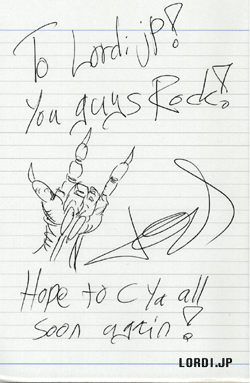 To Lordi.jp!
You guys Rock!
Hope to C Ya all
soon again!
LORDI.JP